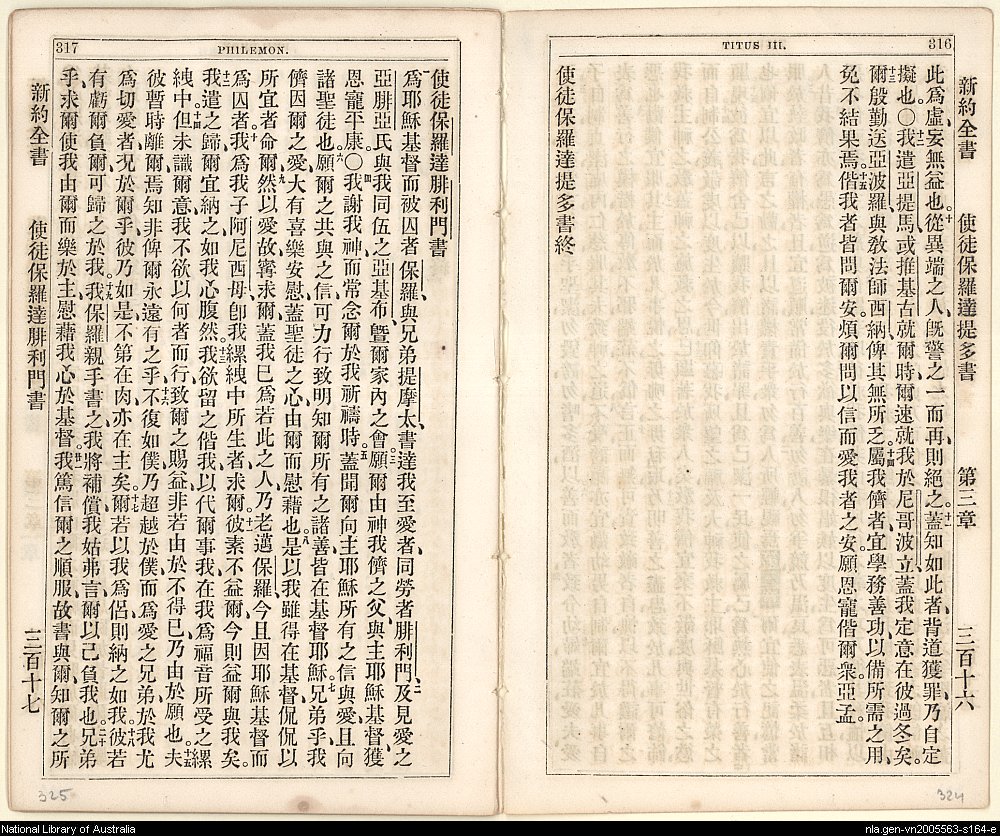 316
TITUS III.
新約全書 使徒保羅達提多書 第三章 三百十六
此爲虛妄無益也。十從異端之人、旣警之一而再、則絕之。十一蓋知如此者、背道獲罪、乃自定
擬也。〇十二我遣亞提馬、或推基古就爾時、爾速就我於尼哥波立、蓋我定意在彼過冬矣。
十三爾殷勤送亞波羅與敎法師西納、俾其無所乏。十四屬我儕者、宜學務善功、以備所需之用、
免不結果焉。十五偕我者皆問爾安、煩爾問以信而愛我者之安、願恩寵偕爾衆、亞孟。
使徒保羅達提多書終
324
317
PHILEMON.
使徒保羅達腓利門書
一爲耶穌基督而被囚者保羅、與兄弟提摩太、書達我至愛者、同勞者腓利門、二及見愛之
亞腓亞氏、與我同伍之亞基布、曁爾家內之會。三願爾由神我儕之父、與主耶穌基督、獲
恩寵平康。〇四我謝我神、而常念爾於我祈禱時。五蓋聞爾向主耶穌所有之信與愛、且向
諸聖徒也。六願爾之共與之信可力行、致明知爾所有之諸善、皆在基督耶穌。七兄弟乎、我
儕因爾之愛、大有喜樂安慰、蓋聖徒之心由爾而慰藉也。八是以我雖得在基督侃侃以
所宜者命爾、九然以愛故寧求爾、蓋我巳爲若此之人、乃老邁保羅、今且因耶穌基督而
爲囚者。十我爲我子阿尼西母、卽我縲絏中所生者、求爾。十一彼素不益爾、今則益爾與我矣。
十二我遣之歸爾、宜納之如我心腹然。十三我欲留之偕我、以代爾事我、在我爲福音所受之縲
絏中。十四但未識爾意、我不欲以何者而行、致爾之賜益、非若由於不得巳、乃由於願也。十五夫
彼暫時離爾、焉知非俾爾永遠有之乎。十六不復如僕、乃超越於僕、而爲愛之兄弟、於我尤
爲切愛者、況於爾乎、彼乃如是、不第在肉、亦在主矣。十七爾若以我爲侶、則納之如我。十八彼若
有虧爾負爾、可歸之於我。十九我保羅親手書之、我將補償、我姑弗言、爾以己負我也。二十兄弟
乎、求爾使我由爾而樂於主、慰藉我心於基督。廿一我篤信爾之順服、故書與爾、知爾之所
新約全書 使徒保羅達腓利門書 三百十七
325
National Library of Australia
nla.gen-vn2005563-s164-e